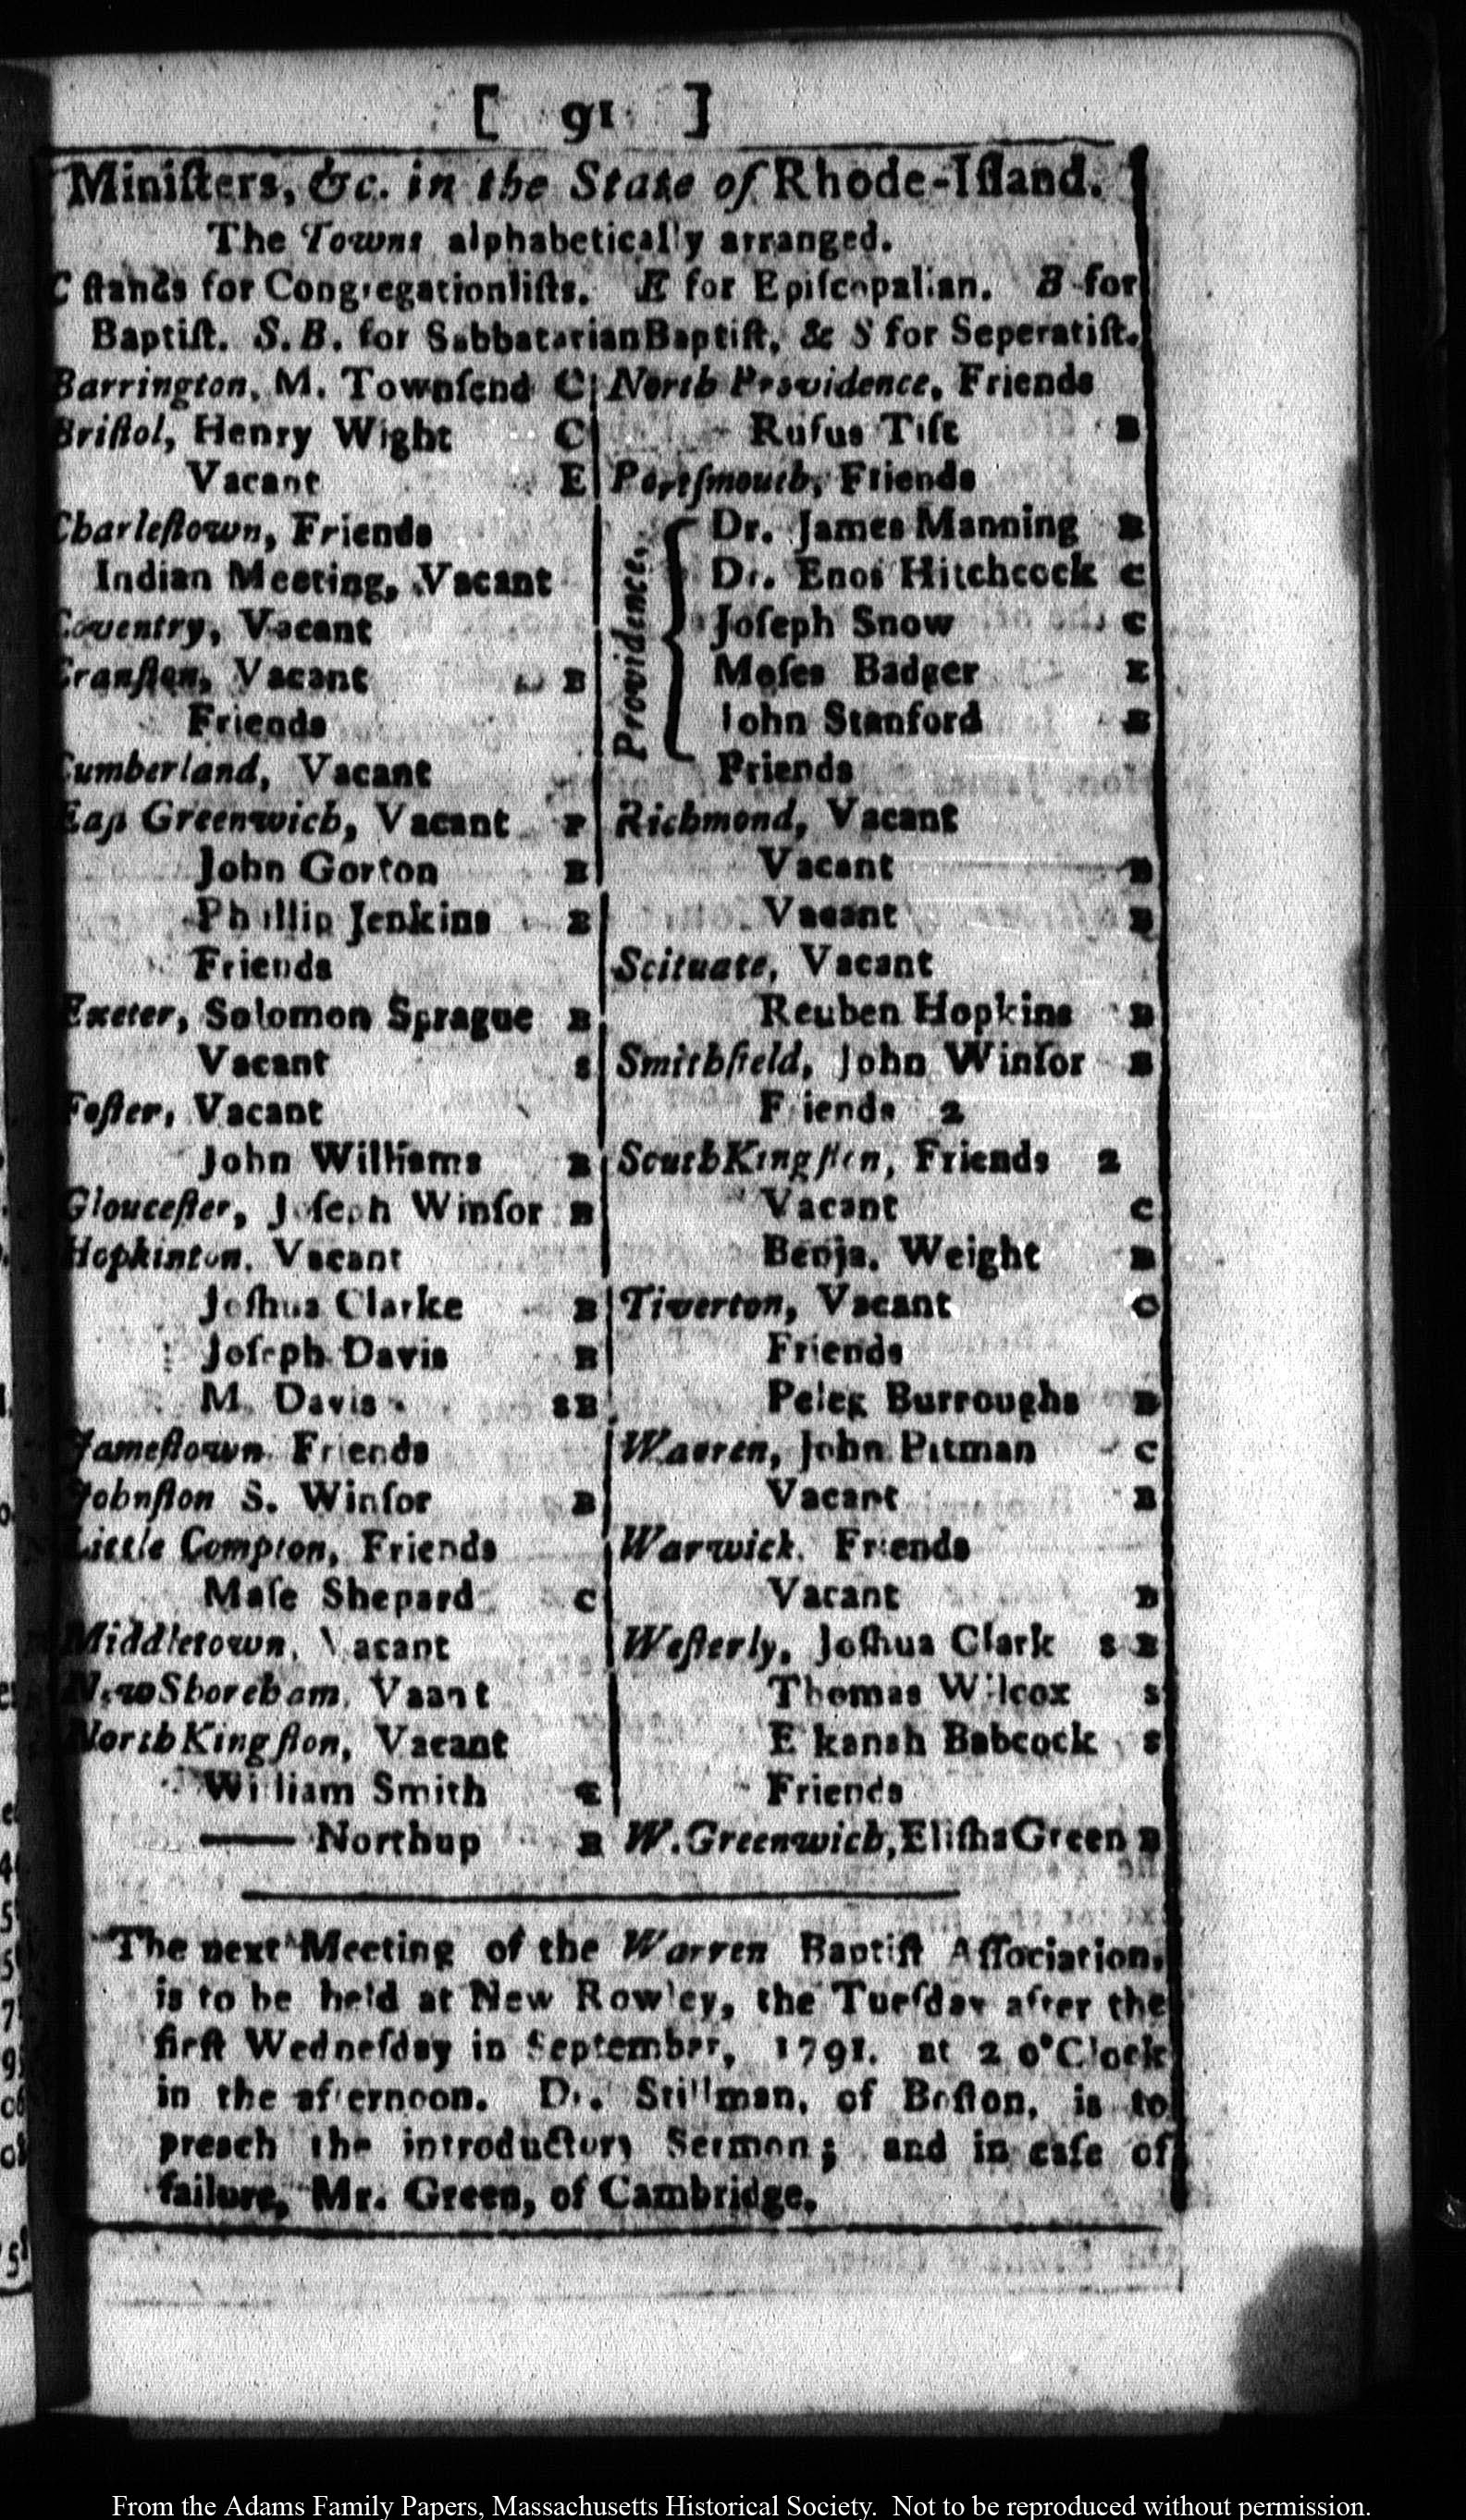 [ 91 ]
Miniſters, &c. in the State of Rhode-Iſland.
The Towns alphabetically arranged.
C ſtands for Congregationliſts. E for Epiſcopalian. B for
Baptiſt. S.B. for Sabbatarian Baptiſt, & S for Seperatiſt.
Barrington, M. Townſend C
Briſtol, Henry Wight C
Vacant E
Charleſtown, Friends
Indian Meeting, Vacant
Coventry, Vacant
Cranſton, Vacant B
Friends
Cumberland, Vacant
Eaſt Greenwich, Vacant
John Gorton B
Phillip Jenkins B
Friends
Exeter, Solomon Sprague B
Vacant S
Foſter, Vacant
John Williams B
Glouceſter, Joſeph Winſor B
Hopkinton, Vacant
Joſhua Clarke B
Joſeph Davis B
M. Davis SB
Jameſtown Friends
Johnſton S. Winſor B
Little Compton, Friends
Maſe Shepard C
Middletown, Vacant
New Shoreham, Vaant
North Kingſton, Vacant
William Smith
—— Northup B
North Providence, Friends
Rufus Tift B
Portſmouth, Friends
Providence,
Dr. James Manning B
Dr. Enos Hitchcock C
Joſeph Snow C
Moſes Badger E
John Stanford B
Friends
Richmond, Vacant
Vacant B
Vacant B
Scituate, Vacant
Reuben Hopkins B
Smithfield, John Winſor B
Friends 2
South Kingſton, Friends 2
Vacant C
Benja. Weight B
Tiverton, Vacant C
Friends
Peleg Burroughs B
Warren, John Pitman C
Vacant B
Warwick. Friends
Vacant B
Weſterly, Joſhua Clark S B
Thomas Wilcox S
E kanah Babcock S
Friends
W. Greenwich, Eliſha Green B
The next Meeting of the Warren Baptiſt Aſſociation,
is to be held at New Rowley, the Tueſday after the
firſt Wedneſday in September, 1791. at 2 o'Clock
in the afternoon. Dr. Stillman, of Boſton, is to
preach the introductory Sermon; and in caſe of
failure, Mr. Green, of Cambridge.
From the Adams Family Papers, Massachusetts Historical Society. Not to be reproduced without permission.